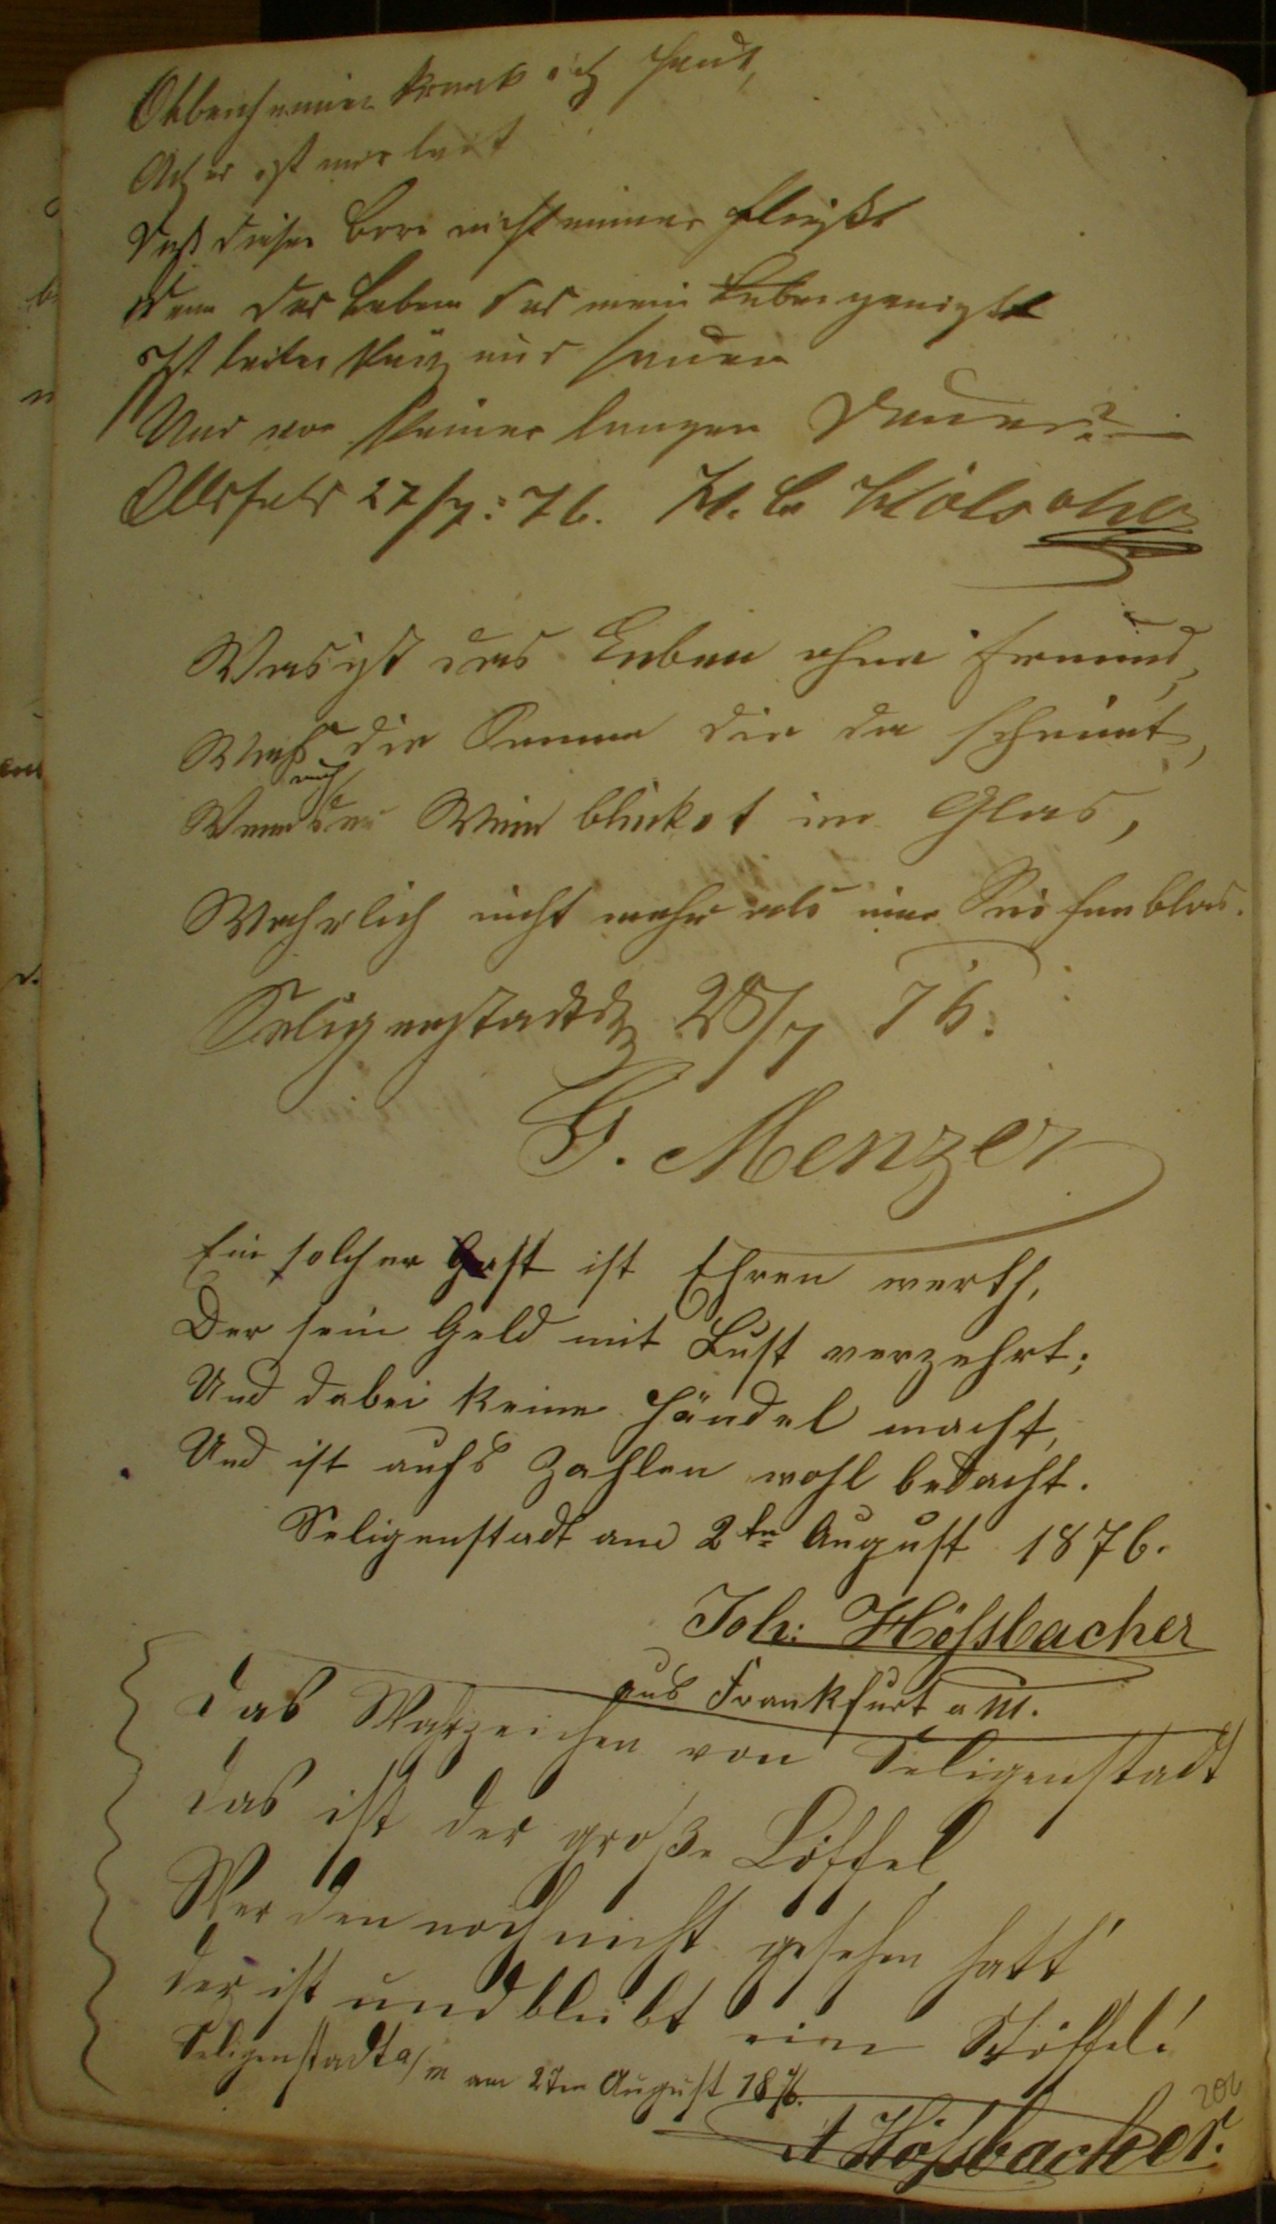 Obbench immer krank ich
Ach es ist mir leid
Daß dieser Born nicht immer fließt
Denn das Leben das mein
Ist leider
Und von keiner langen Dauer?
27/7. 76. H. C. Hölscher
Was ist das Leben ohne Freund,
Was die Sonne die da scheint,
auch
Wenn der Wein blinket im Glas,
Wahrlich nicht mehr als eine Seifenblas.
Seligenstadt 28/7 76.
G. Menzer
Ein solcher Gast ist Ehren werth,
Der sein Geld mit Lust verzehrt;
Und dabei keine Händel macht,
Und ist aufs Zahlen wohl bedacht.
Seligenstadt am 2ten August 1876.
Joh: Hößbacher
aus Frankfurt a M.
Das Warzeichen von Seligenstadt
das ist der große Löffel,
Wer den noch nicht gesehen hatt'
der ist und bleibt ein Stöffel!
Seligenstadt a/m am 2ten August 1876.
A Hößbacher.